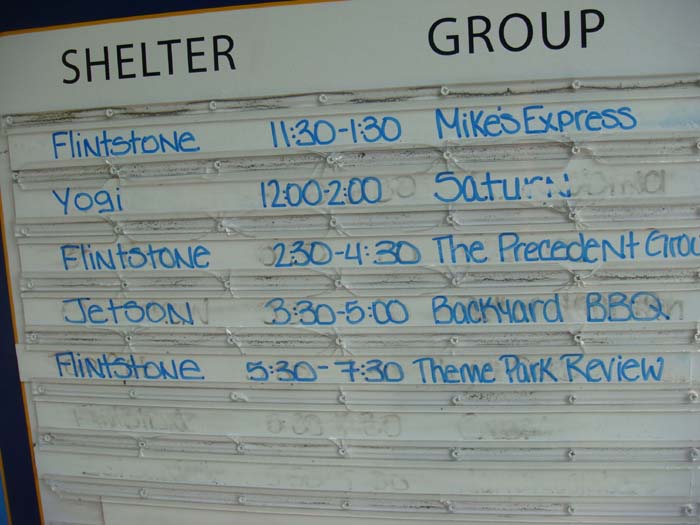 SHELTER GROUP
Flintstone 11:30-1:30 Mike's Express
Yogi 12:00-2:00 Saturn
Flintstone 2:30-4:30 The Precedent Grou
Jetson 3:30-5:00 Backyard BBQ
Flintstone 5:30-7:30 Theme Park Review